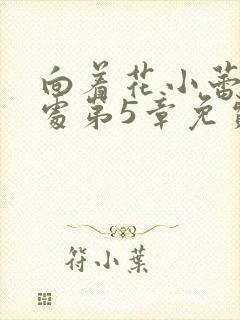 向着花小蕾
处第5章免
符小葉